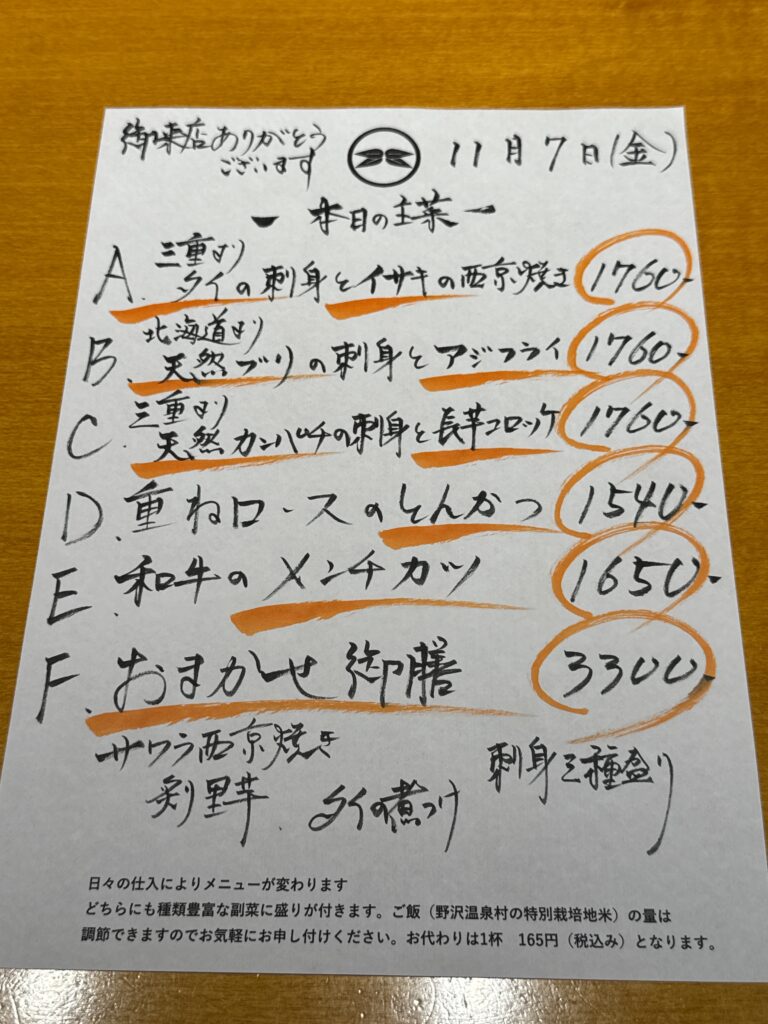 御来店ありがとう
ございます
11月7日(金)
本日の主菜
A. 三重より
タイの刺身とイサキの西京焼き 1760-
B. 北海道より
天然ブリの刺身とアジフライ 1760-
C. 三重より
天然カンパチの刺身と長芋コロッケ 1760-
D. 重ねロースのとんかつ 1540-
E. 和牛のメンチカツ 1650-
F. おまかせ御膳 3300-
サワラ西京焼き
刺身三種盛り
里芋
タイの煮つけ
日々の仕入によりメニューが変わります
どちらにも種類豊富な副菜に盛りが付きます。ご飯(野沢温泉村の特別栽培地米)の量は
調節できますのでお気軽にお申し付けください。お代わりは1杯 165円(税込み)となります。